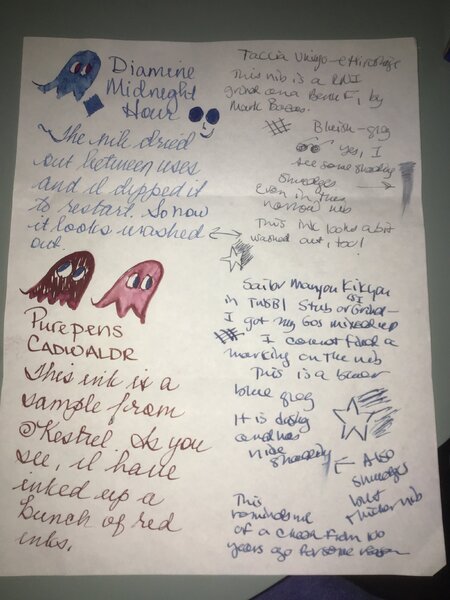 Diamine
Midnight
Hour
The ink dried
out between uses
and I dipped it
to restart. So now
it looks washed
out.
Purepens
CADWALADR
This ink is a
sample from
@Kestrel As you
see, I have
inked up a
bunch of red
inks.
Taccia Ukiyo-e Hiroshige
This nib is a
grind on a F, by
Mark
Bluish-gray
yes, I
see some shading
Smudges
Even in the
narrow nib
This ink looks a bit
washed out, too!
Sailor Manyou Kikyou
in TWSBI Stub or Grind-
I got my 60s mixed up
I cannot find a
marking on the nib
This is a
blue gray
It is dusky
and has
nice shading
Also
smudges
but
thicker nib
This
reminds me
of a from 100
years ago for some reason